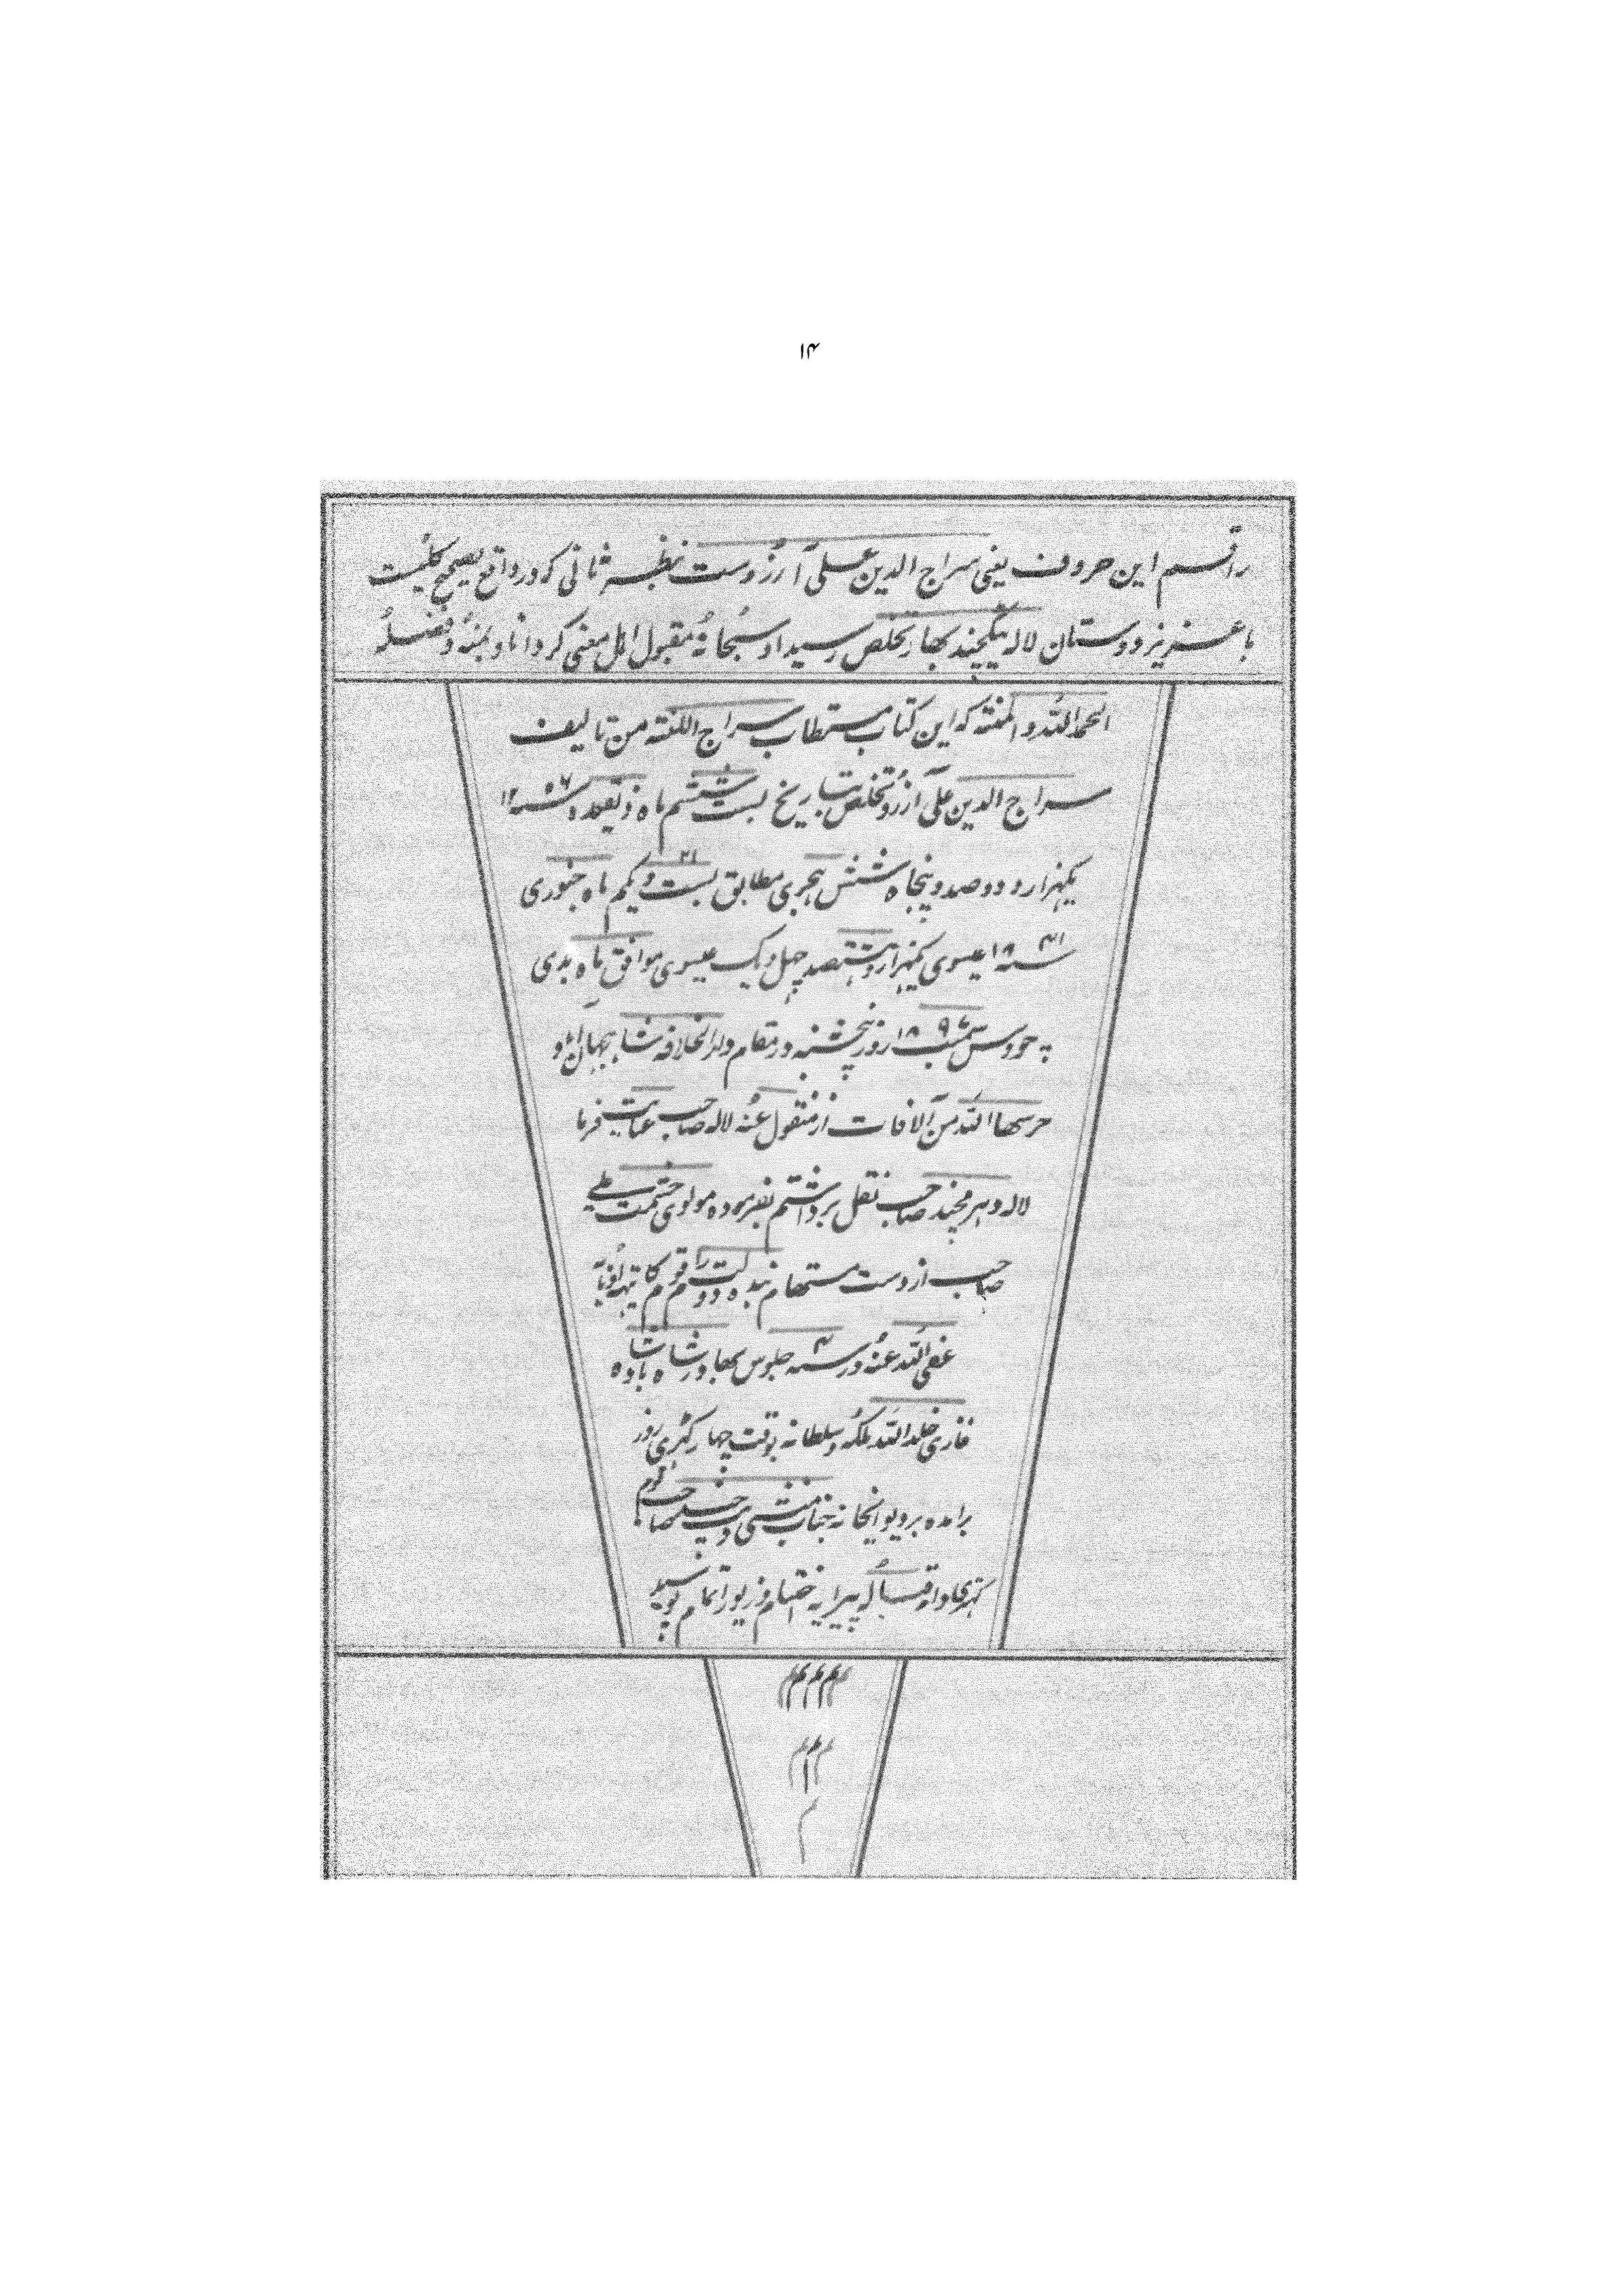 ۱۴
راقم این حروف یعنی سراج الدین علی آرزوست نظر ثانی کرد و در واقع تصحیح
با عزیز دوستان لاله تیکچند بهار تخلص رسید او سبحانه مقبول اهل معنی کرداناد بمنه و فضله
الحمد الله و المنته که این کتاب مستطاب سراج اللغته من تالیف
سراج الدین علی آرزو تخلص بتاریخ بست ششم ماه ذیقعده سنه ۱۲۵۶
یکهزار و دو صد و پنجاه شش هجری مطابق بست و یکم ۲۱ ماه جنوری
سنه ۱۸۴۱ عیسوی یکهزار و هشتصد چهل و یک عیسوی موافق ماه بدی
سمت ۱۸۹۷ روز پنچشنبه در مقام دارالخلافه شاهجهان اباد
حرسها الله من آلافات از منقول عنه لاله صاحب عنایت فرما
لاله صاحب نقل برداشتم بفرموده مولوی حشمت علی
صاحب از دست مستهام بنده دولت رام قوم
عفی الله عنه در سنه ۴ جلوس بهادر شاه بادشاه
غازی خلد الله ملکه و سلطانه بوقت چهار گهڑی روز
برامده بر دیوانخانه جناب منشی صاحب قوم
دام اقباله پیرایه اختتام و زیور اتمام پوشید